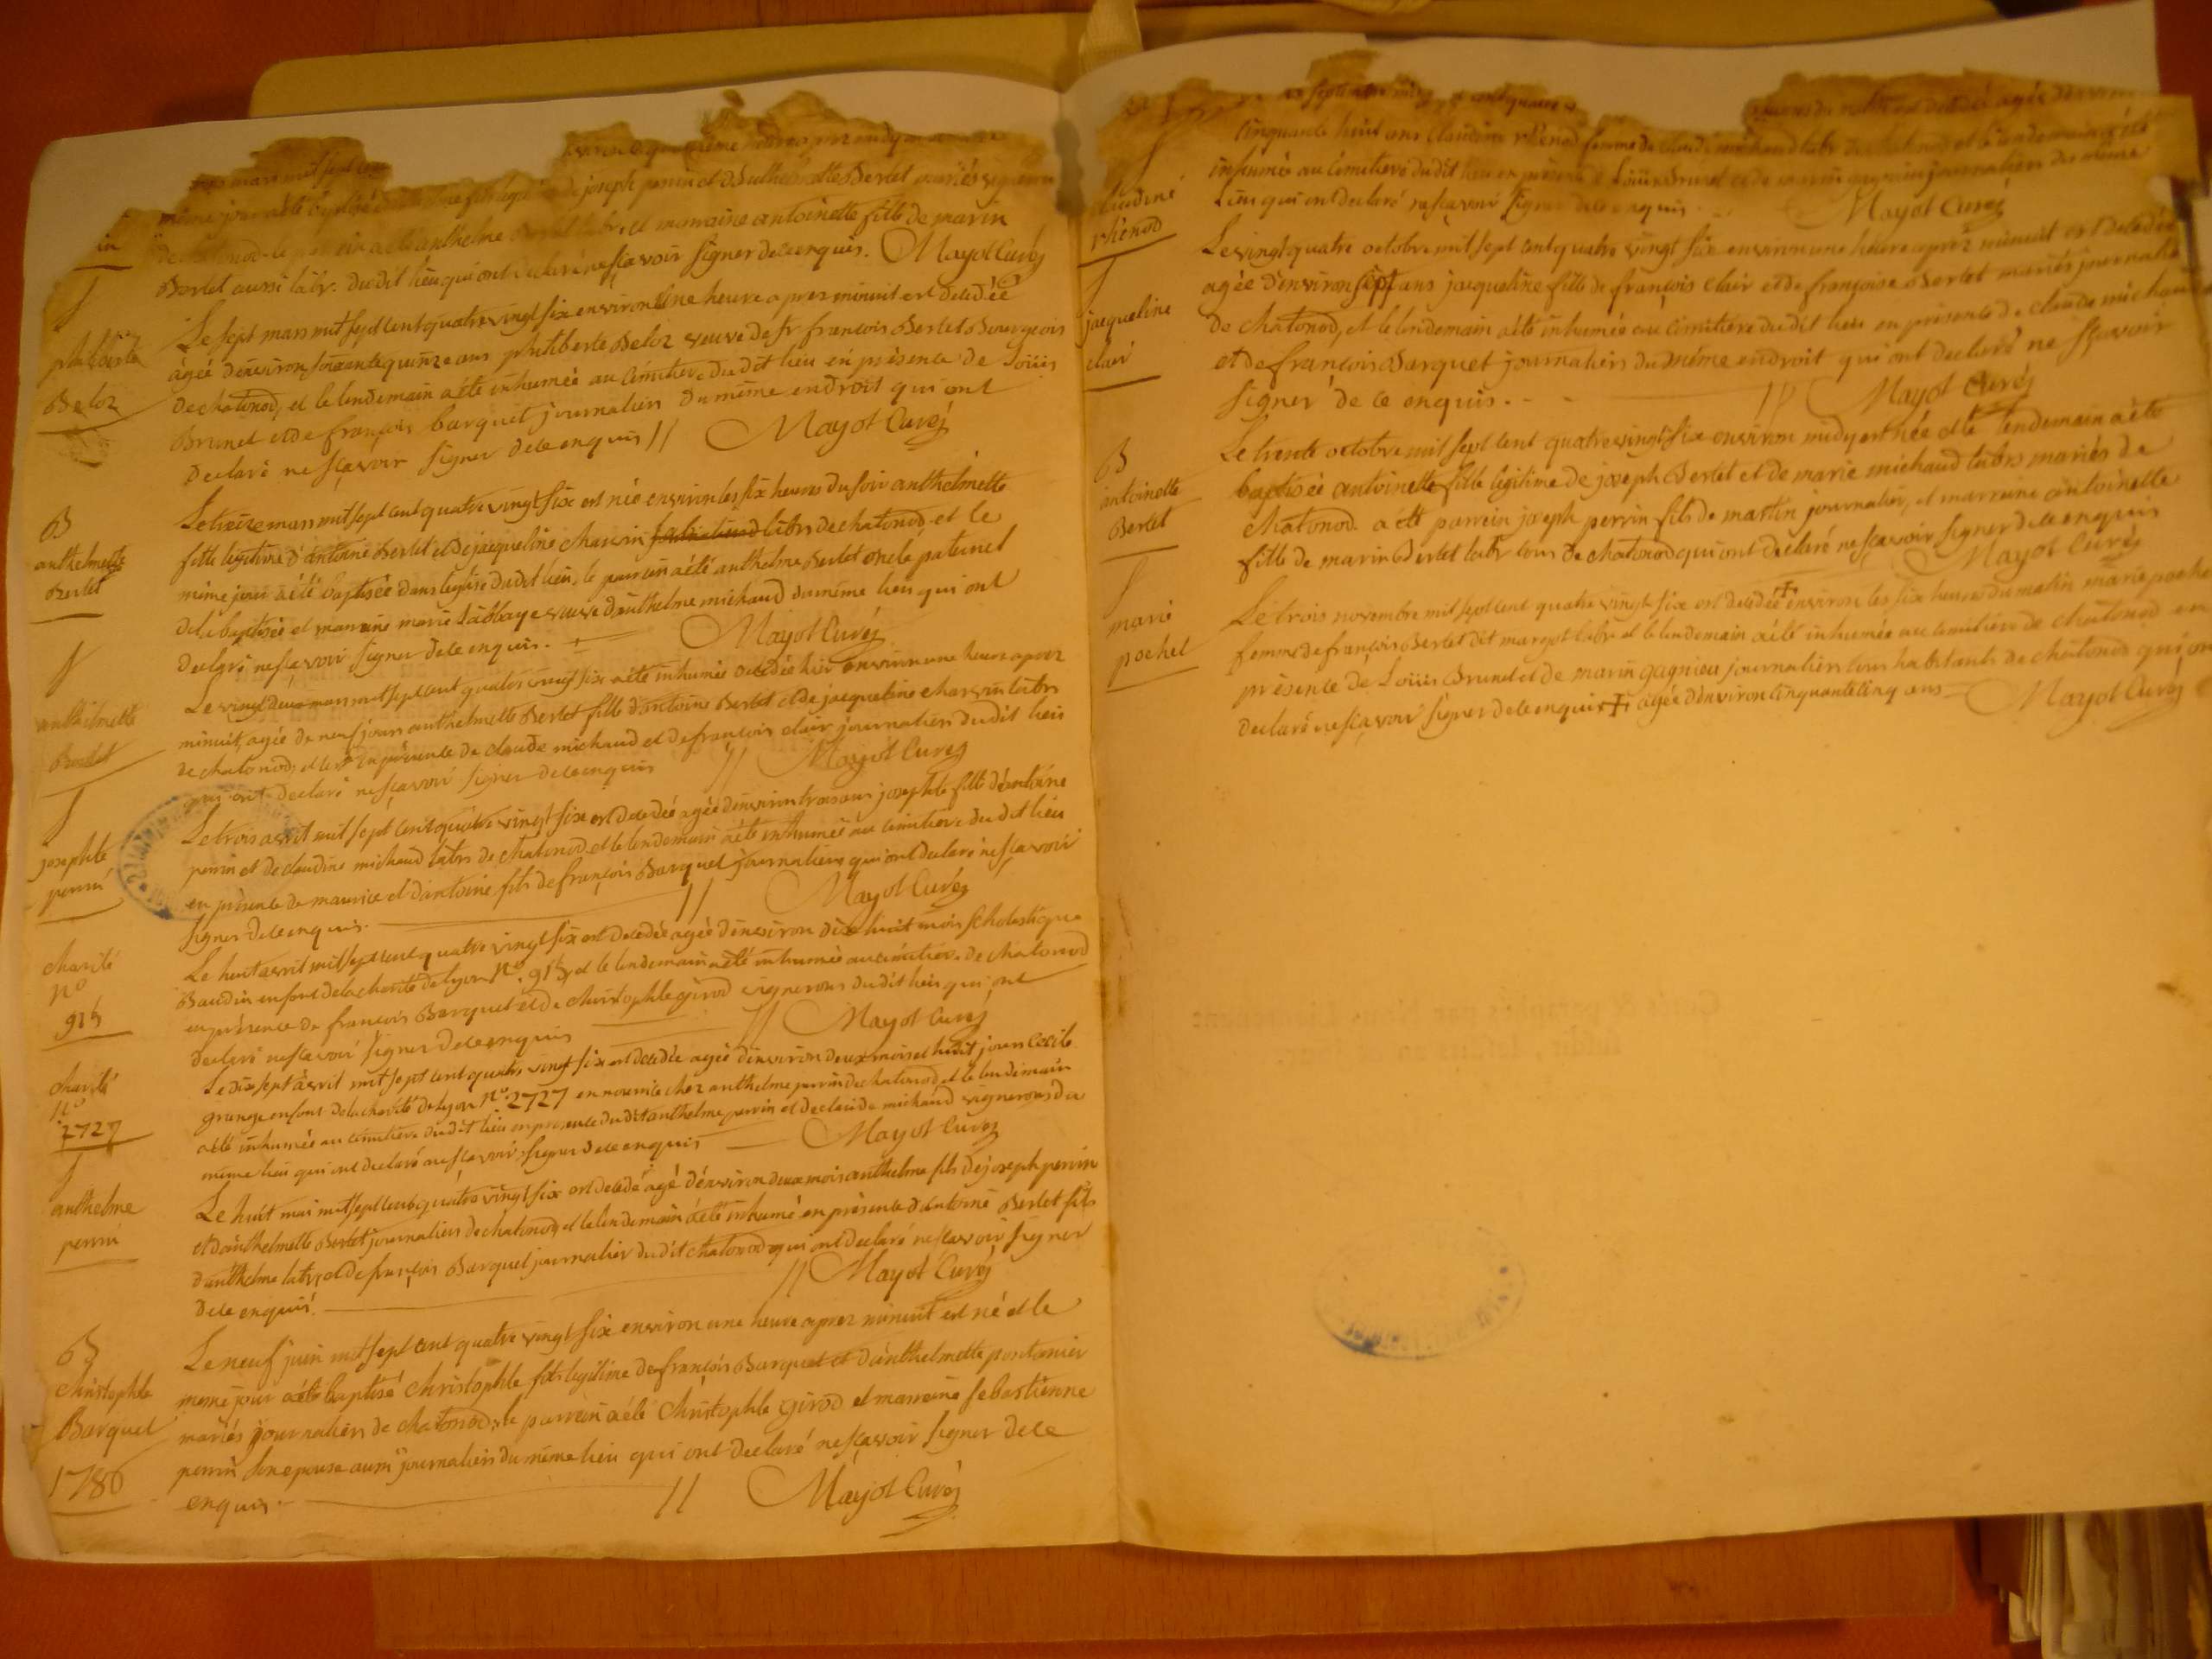 mars mil sept cent
même jour a été baptisé anthelme fils legitime de joseph perrin et d'anthelmette Berlet mariés vignerons
de chatonod le parrain a été anthelme Berlet labr. et marraine antoinette fille de marin
Berlet aussi labr. dudit lieu qui ont declaré ne sçavoir signer de ce enquis. Mayot Curé
philiberte
Beloz
Le sept mars mil sept cent quatre vingt six environ une heure aprez minuit est decedée
agée d'environ soixante quinze ans philiberte Beloz veuve de sr françois Berlet Bourgeois
de chatonod, et le lendemain a été inhumée au cimetiere dudit lieu en présence de Loüis
Brunet et de françois barquet journaliers du même endroit qui ont
declaré ne sçavoir signer de ce enquis // Mayot Curé
B
anthelmette
Berlet
Le treize mars mil sept cent quatre vingt six est née environ les six heures du soir anthelmette
fille legitime d'antoine Berlet et de jacqueline charvin labrs de chatonod et le
même jour a été baptisée dans l'eglise dudit lieu, le parrain a été anthelme Berlet oncle paternel
de la baptisée et marraine marie Labbaye veuve d'anthelme michaud du même lieu qui ont
declaré ne sçavoir signer de ce enquis. Mayot Curé
anthelmette
Berlet
Le vingt deux mars mil sept cent quatre vingt six a été inhumée decedée hier environ une heure aprez
minuit, agée de neuf jours anthelmette Berlet fille d'antoine Berlet et de jacqueline charvin labrs
de chatonod, et en présence de claude michaud et de françois clair journaliers dudit lieu
qui ont declaré ne sçavoir signer de ce enquis // Mayot Curé
josephte
perrin
Le trois avril mil sept cent quatre vingt six est decedée agée d'environ trois ans josephte fille d'antoine
perrin et de claudine michaud labrs de chatonod et le lendemain a été inhumée au cimetiere dudit lieu
en présence de maurice et d'antoine fils de françois Barquet journaliers qui ont declaré ne sçavoir
signer de ce enquis. // Mayot Curé
charité
n°
915
Le huit avril mil sept cent quatre vingt six est decedée agée d'environ dix huit mois scholastique
Baudin enfant de la charité de Lyon N° 915, et le lendemain a été inhumée au cimetiere de chatonod
en présence de françois Barquet et de christophle girod vignerons dudit lieu qui ont
declaré ne sçavoir signer de ce enquis // Mayot Curé
charité
n°
2727
Le dix sept avril mil sept cent quatre vingt six est decedée agée d'environ deux mois et huit jours Cecile
grange enfant de la charité de Lyon N° 2727 en nourrice chez anthelme perrin de chatonod et le lendemain
a été inhumée au cimetiere dudit lieu en présence dudit anthelme perrin et de claude michaud vignerons du
même lieu qui ont declaré ne sçavoir signer de ce enquis Mayot Curé
anthelme
perrin
Le huit mai mil sept cent quatre vingt six est decedé agé d'environ deux mois anthelme fils de joseph perrin
et d'anthelmette Berlet journaliers de chatonod, et le lendemain a été inhumé en présence d'antoine Berlet fils
d'anthelme labr, et de françois Barquet journalier dudit chatonod qui ont declaré ne sçavoir signer
de ce enquis. // Mayot Curé
B
christophle
Barquet
Le neuf juin mil sept cent quatre vingt six environ une heure aprez minuit est né et le
même jour a été baptisé christophle fils legitime de françois Barquet et d'anthelmette pontanier
mariés journaliers de chatonod, le parrain a été christophle girod et marraine sebastienne
perrin son epouse aussi journaliers du même lieu qui ont declaré ne sçavoir signer de ce
enquis. // Mayot Curé
1786
claudine
rhénod
cinquante huit ans claudine rhénod femme de claude michaud labr de chatonod et le lendemain a été
inhumée au cimetiere dudit lieu en présence de Loüis Brunet et de marin gagnieu journaliers du même
Lieu qui ont declaré ne sçavoir signer de ce enquis. Mayot Curé
jacqueline
clair
Le vingt quatre octobre mil sept cent quatre vingt six environ une heure aprez minuit est decedée
agée d'environ sept ans jacqueline fille de françois clair et de françoise Berlet mariés journalrs
de chatonod, et le lendemain a été inhumée au cimetiere dudit lieu en présence de claude michaud
et de françois Barquet journaliers du même endroit qui ont declaré ne sçavoir
signer de ce enquis. - // Mayot Curé
B
antoinette
Berlet
Le trente octobre mil sept cent quatre vingt six environ midy est née et le lendemain a été
baptisée antoinette fille legitime de joseph Berlet et de marie michaud labrs mariés de
chatonod. a été parrain joseph perrin fils de martin journalier, et marraine antoinette
fille de marin Berlet labr tous de chatonod qui ont declaré ne sçavoir signer de ce enquis
Mayot Curé
marie
pochet
Le trois novembre mil sept cent quatre vingt six est decedée + environ les six heures du matin marie pochet
femme de françois Berlet dit marest labr et le lendemain a été inhumée au cimetiere de chatonod en
présence de Loüis Brunet et de marin gagnieu journaliers tous habitants de chatonod qui ont
declaré ne sçavoir signer de ce enquis + agée d'environ cinquante cinq ans Mayot Curé